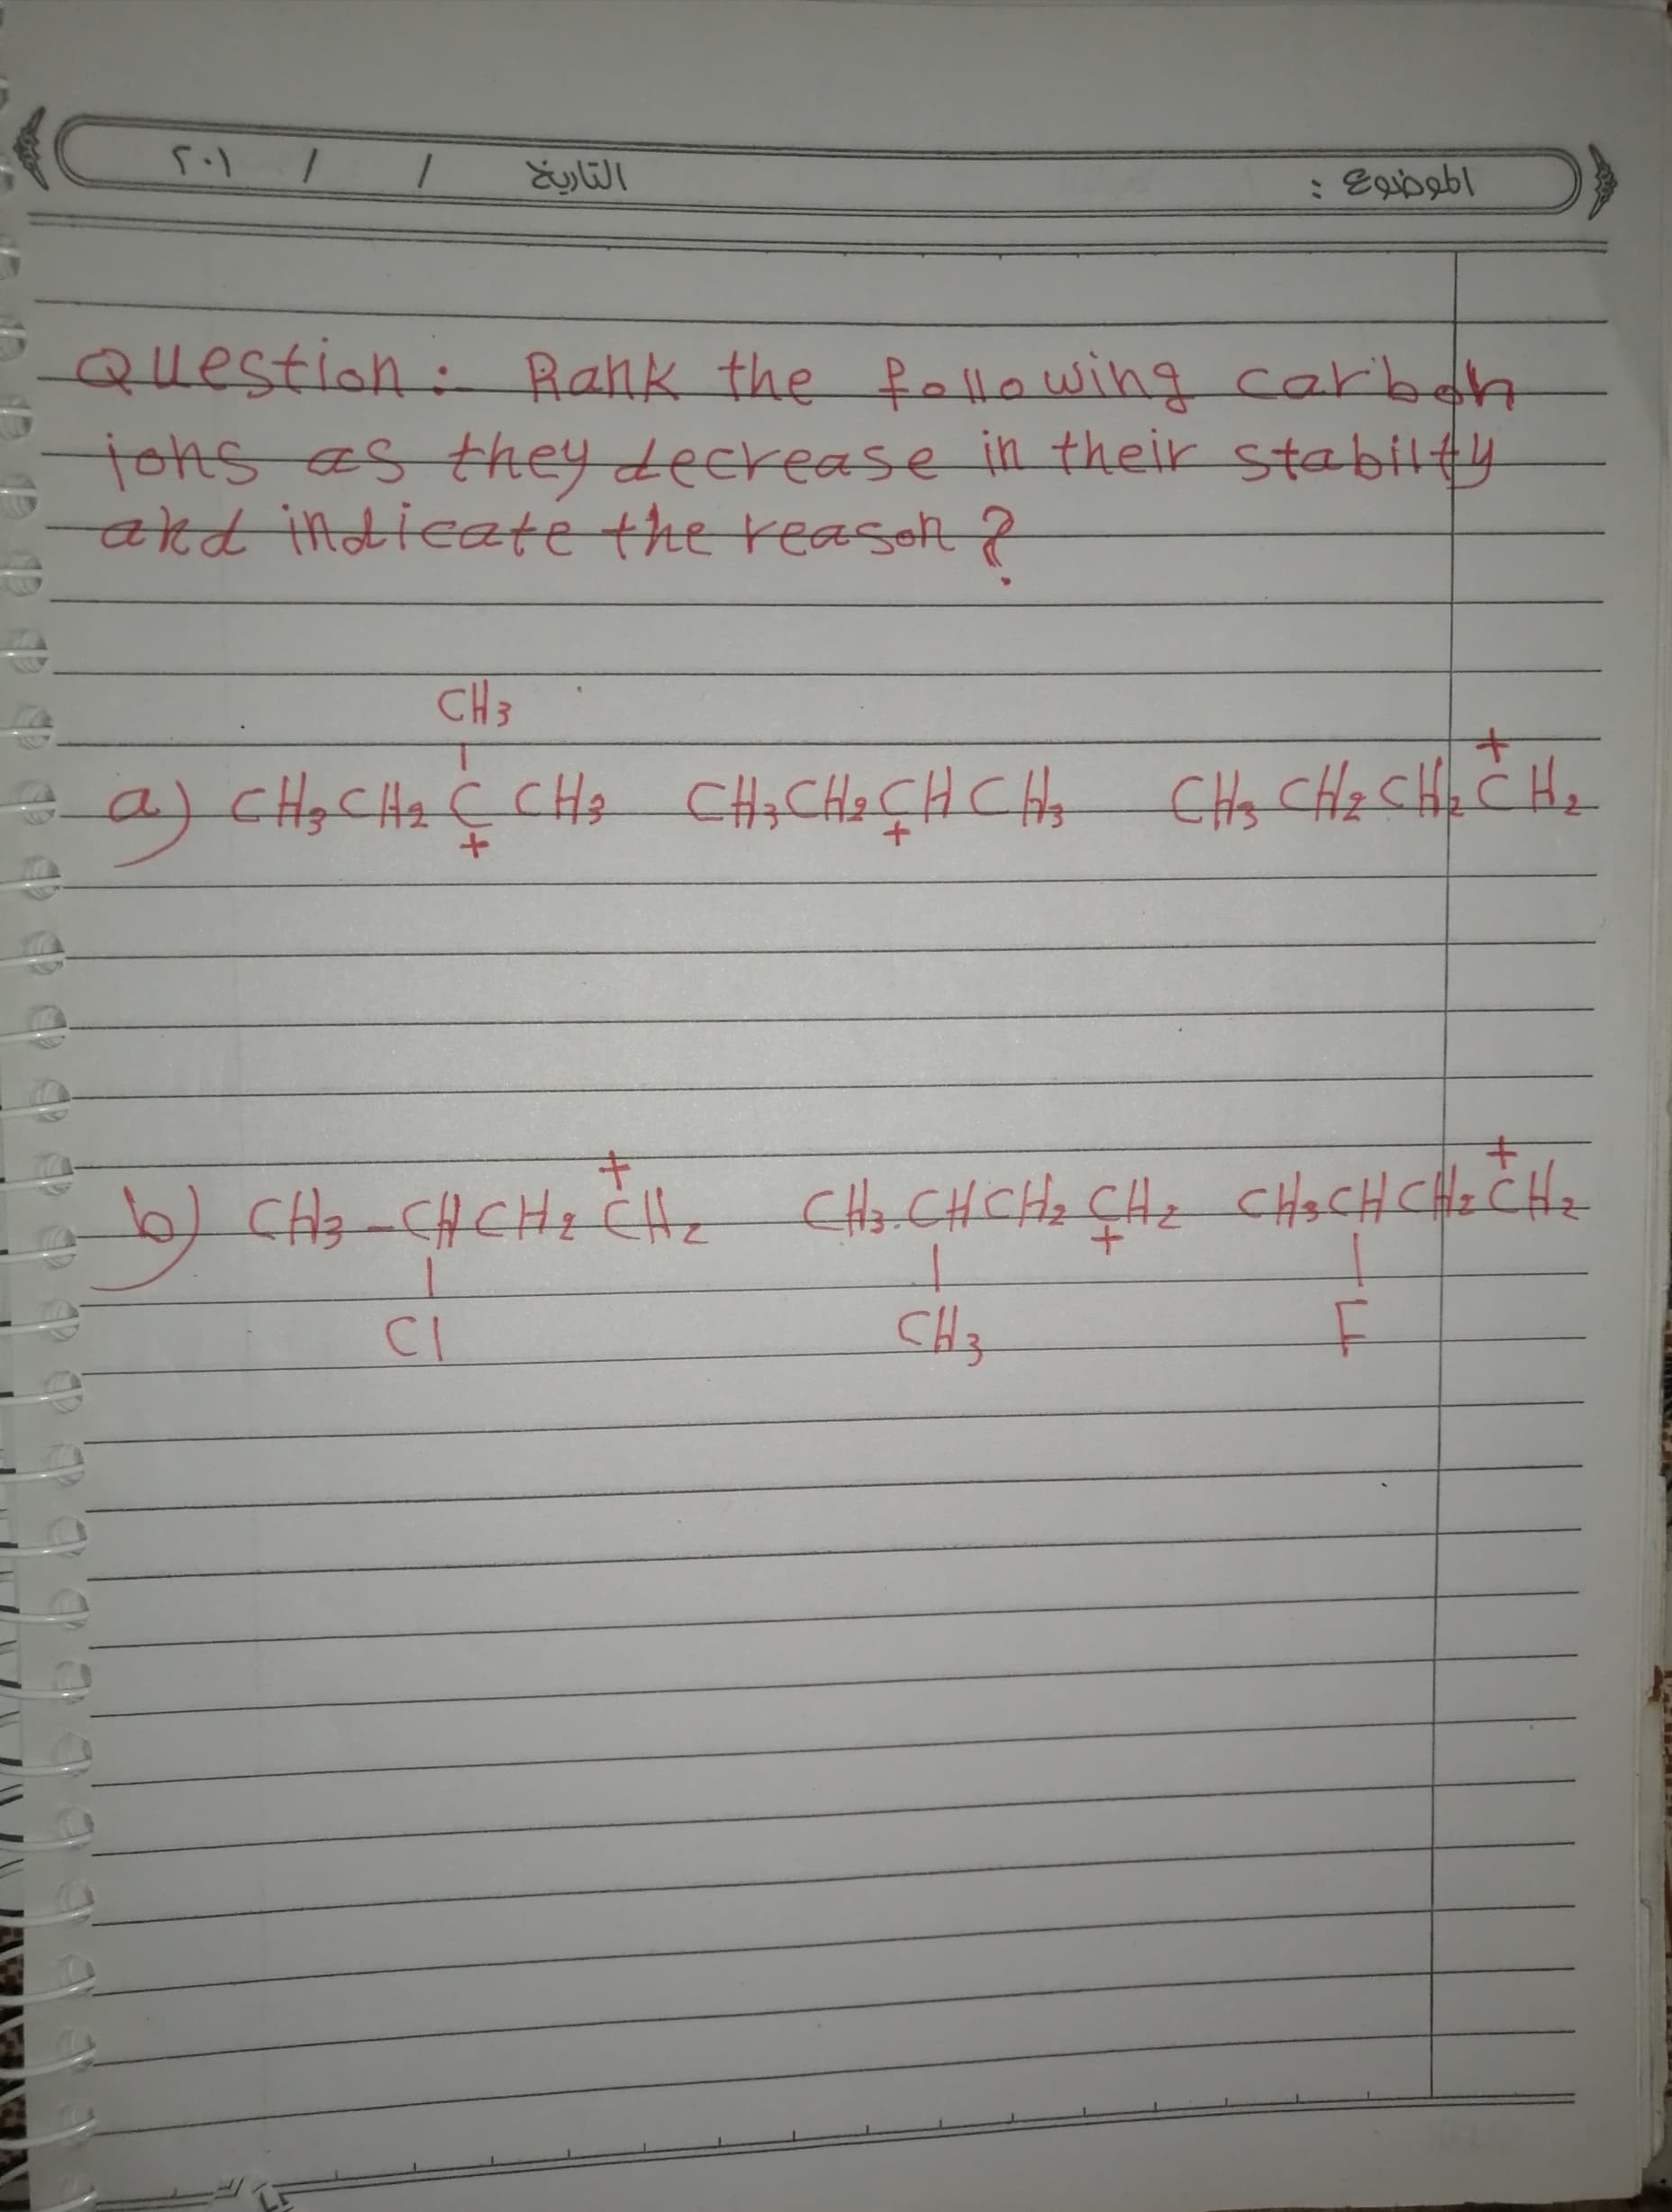 الموضوع : التاريخ / / ٢٠١
Question :- Rank the following carbon
ions as they decrease in their stabilty
and indicate the reason ?
CH3
|
a) CH3CH2 C CH3 CH3CH2CHCH3 CH3CH2CH2C+H2
+ +
b) CH3-CHCH2C+H2 CH3.CHCH2CH2 CH3CHCH2C+H2
| | + |
Cl CH3 F